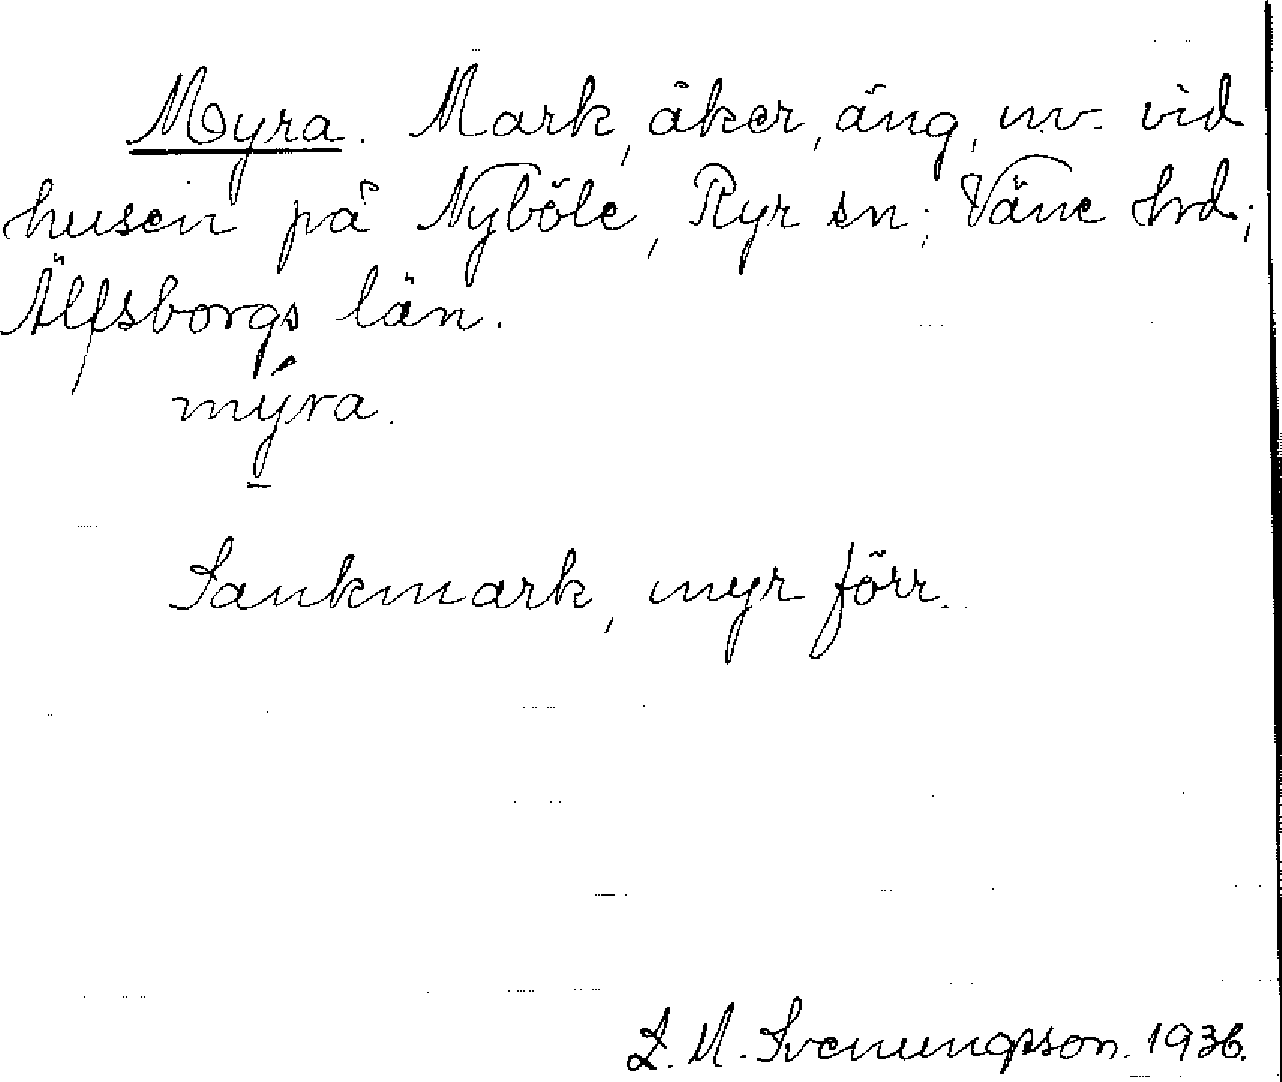 Myra. Mark, åker, äng, n.v. vid
husen på Nyböle, Ryr sn; Väne hrd;
Älfsborgs län.
mýra.
Sankmark, myr förr.
L. M. Svenungsson. 1936.